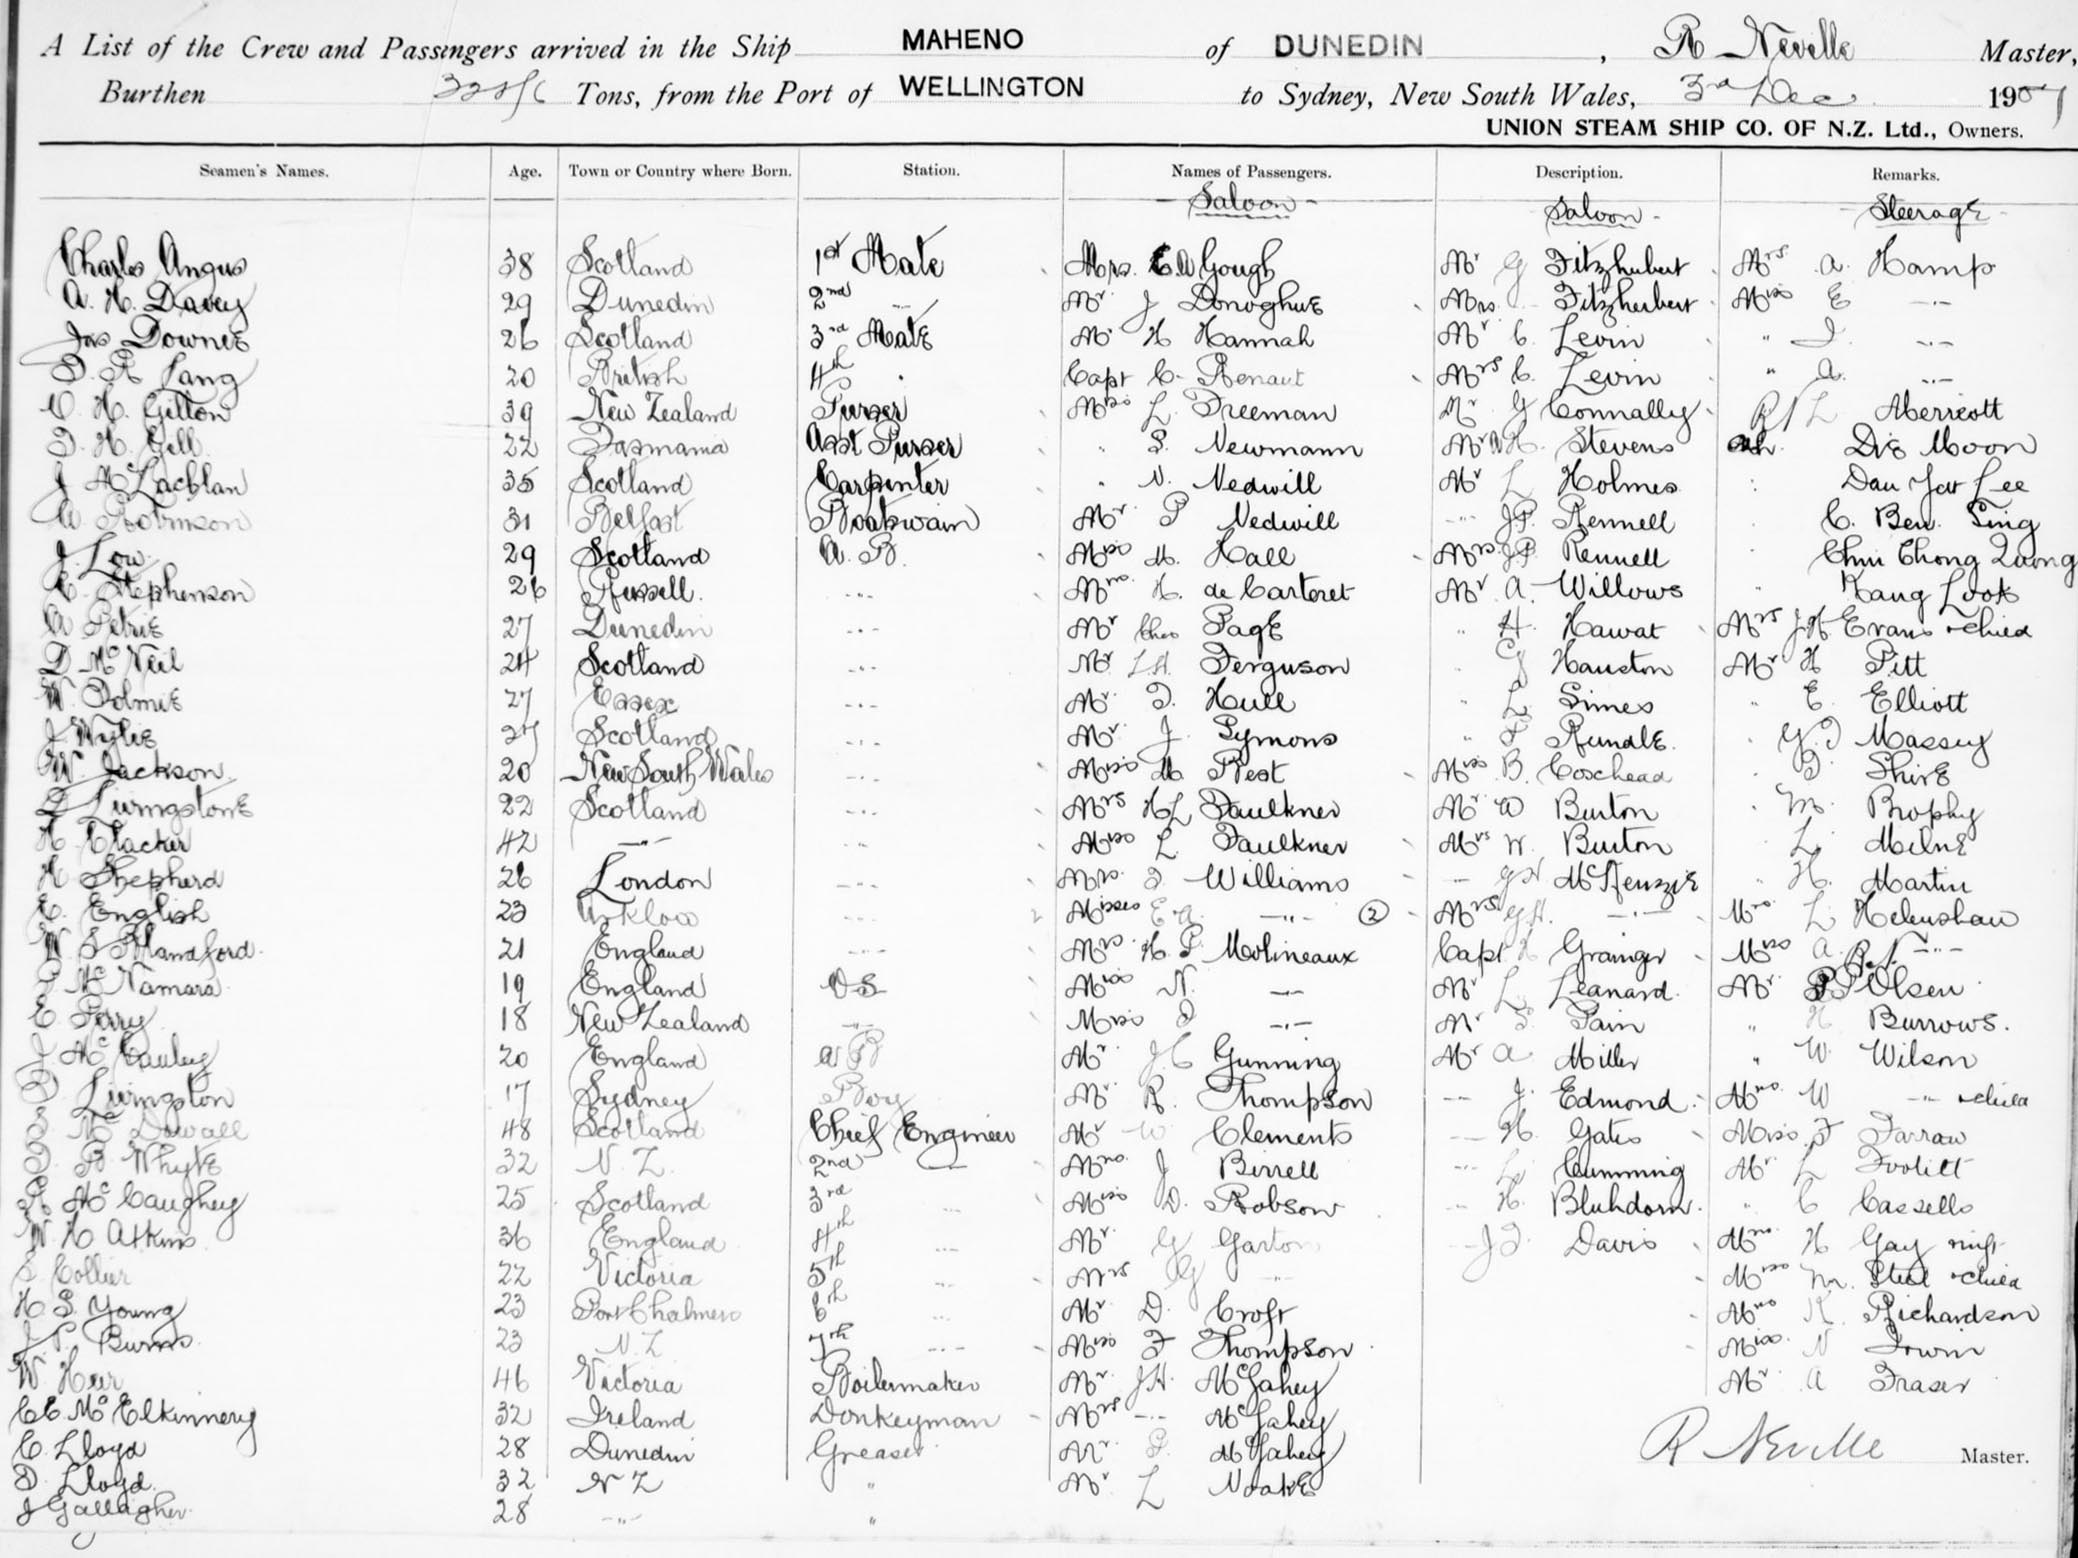 A List of the Crew and Passengers arrived in the Ship MAHENO of DUNEDIN, R Neville Master,
Burthen Tons, from the Port of WELLINGTON to Sydney, New South Wales, 3rd Dec 1907
UNION STEAM SHIP CO. OF N.Z. Ltd., Owners.
Seamen's Names. Age. Town or Country where Born. Station. Names of Passengers. Description. Remarks.
Saloon Saloon Steerage
Charles Angus 38 Scotland 1st Mate Mrs. Gough Mr G Fitzherbert Mrs A. Hamp
A. H. Davey 29 Dunedin 2nd -"- Mr J Donoghue Mrs. Fitzherbert Miss E -"-
Jas Downie 26 Scotland 3rd Mate Mr H Hannah Mr C. Levin " I. -"-
D. R Lang 20 British 4th " Capt C- Renaut Mrs C. Levin " A. -"-
C. H. Gilton 39 New Zealand Purser Miss L. Freeman Mr G Connally Merricott
T. H. Gill 22 Tasmania Asst Purser " S. Newmann Mr H. Stevens Die Moon
J McLachlan 35 Scotland Carpenter " N. Nedwill Mr L Holmes Dau Yew Lee
W. Robinson 31 Belfast Boatswain Mr. P Nedwill -"- J.P. Rennell C. Ben. Sing
J. Low 29 Scotland A. B. Miss M. Hall Mrs. J.P. Rennell Chu Chong Quong
C. Stephenson 26 Russell. -"- Mrs. H. de Carteret Mr A. Willows Kang Look
A Petrie 27 Dunedin -"- Mr Chas Page " H. Hawat Mrs J H Evans + child
D McNeil 24 Scotland -"- Mr. L.H. Ferguson " G Hauston Mr H Pitt
W. Tolmie 27 Essex -"- Mr. T. Hull " L. Simes " E. Elliott
J Wylie 27 Scotland -"- Mr. J. Symons " F Rundle. " G.T Massey
W. Jackson. 20 New South Wales -"- Miss M Best Miss B. Coxhead " T. Shire
D Livingstone 22 Scotland -"- Mrs HL Faulkner Mr W Burton " M. Brophy
H Clacker 42 -"- -"- Miss L Faulkner Mrs W. Burton " L. Milne
H Shepherd 26 London -"- Mrs. T. Williams -"- G H McKenzie " H. Martin
C. English 23 Arklow -"- Misses E A. -"- (2) Mrs G H. -"- Mrs. L Helmshaw
W S Blandford. 21 England -"- Mrs. H. P. Molineaux Capt H Grainger Miss A. -"-
P McNamara 19 England O S Miss N. -"- Mr L. Leanard. Mr. P Olsen
E Perry 18 New Zealand -"- Miss D -"- Mr S. Pain " H Burrows.
J McCauley 20 England A B Mr. J C Gunning Mr A Miller " W. Wilson
D Livingston 17 Sydney Boy Mr R. Thompson -"- J. Edmond Mrs. W -"- + child
S McDowall 48 Scotland Chief Engineer Mr W Clements -"- H. Gates Miss F Farraw
D. B. Whyte 32 N. Z. 2nd -"- Mrs. J Birrell -"- L. Cumming Mr. L Foolitt
R McCaughey 25 Scotland 3rd -"- Miss D. Robson -"- H. Bluhdorn " C Cassells
W. H Atkins 36 England 4th -"- Mr. G Garton -"- J T. Davis Mrs. H Gay
S Collier 22 Victoria 5th -"- Mrs G -"- Miss M. Steel + child
H S. Young 23 Port Chalmers 6th -"- Mr. D. Croft Mrs R. Richardson
J. P. Burns 23 N. Z 7th -"- Miss F Thompson Miss N Irwin
W. Heir 46 Victoria Boilermaker Mr. J.H. McGahey Mr. A Fraser
McElkinnery 32 Ireland Donkeyman Mrs -"- McGahey
C. Lloyd 28 Dunedin Greaser Mr. P. McGahey R Neville Master.
D. Lloyd. 32 N Z " Mr L Noake
J Gallagher 28 -"- "